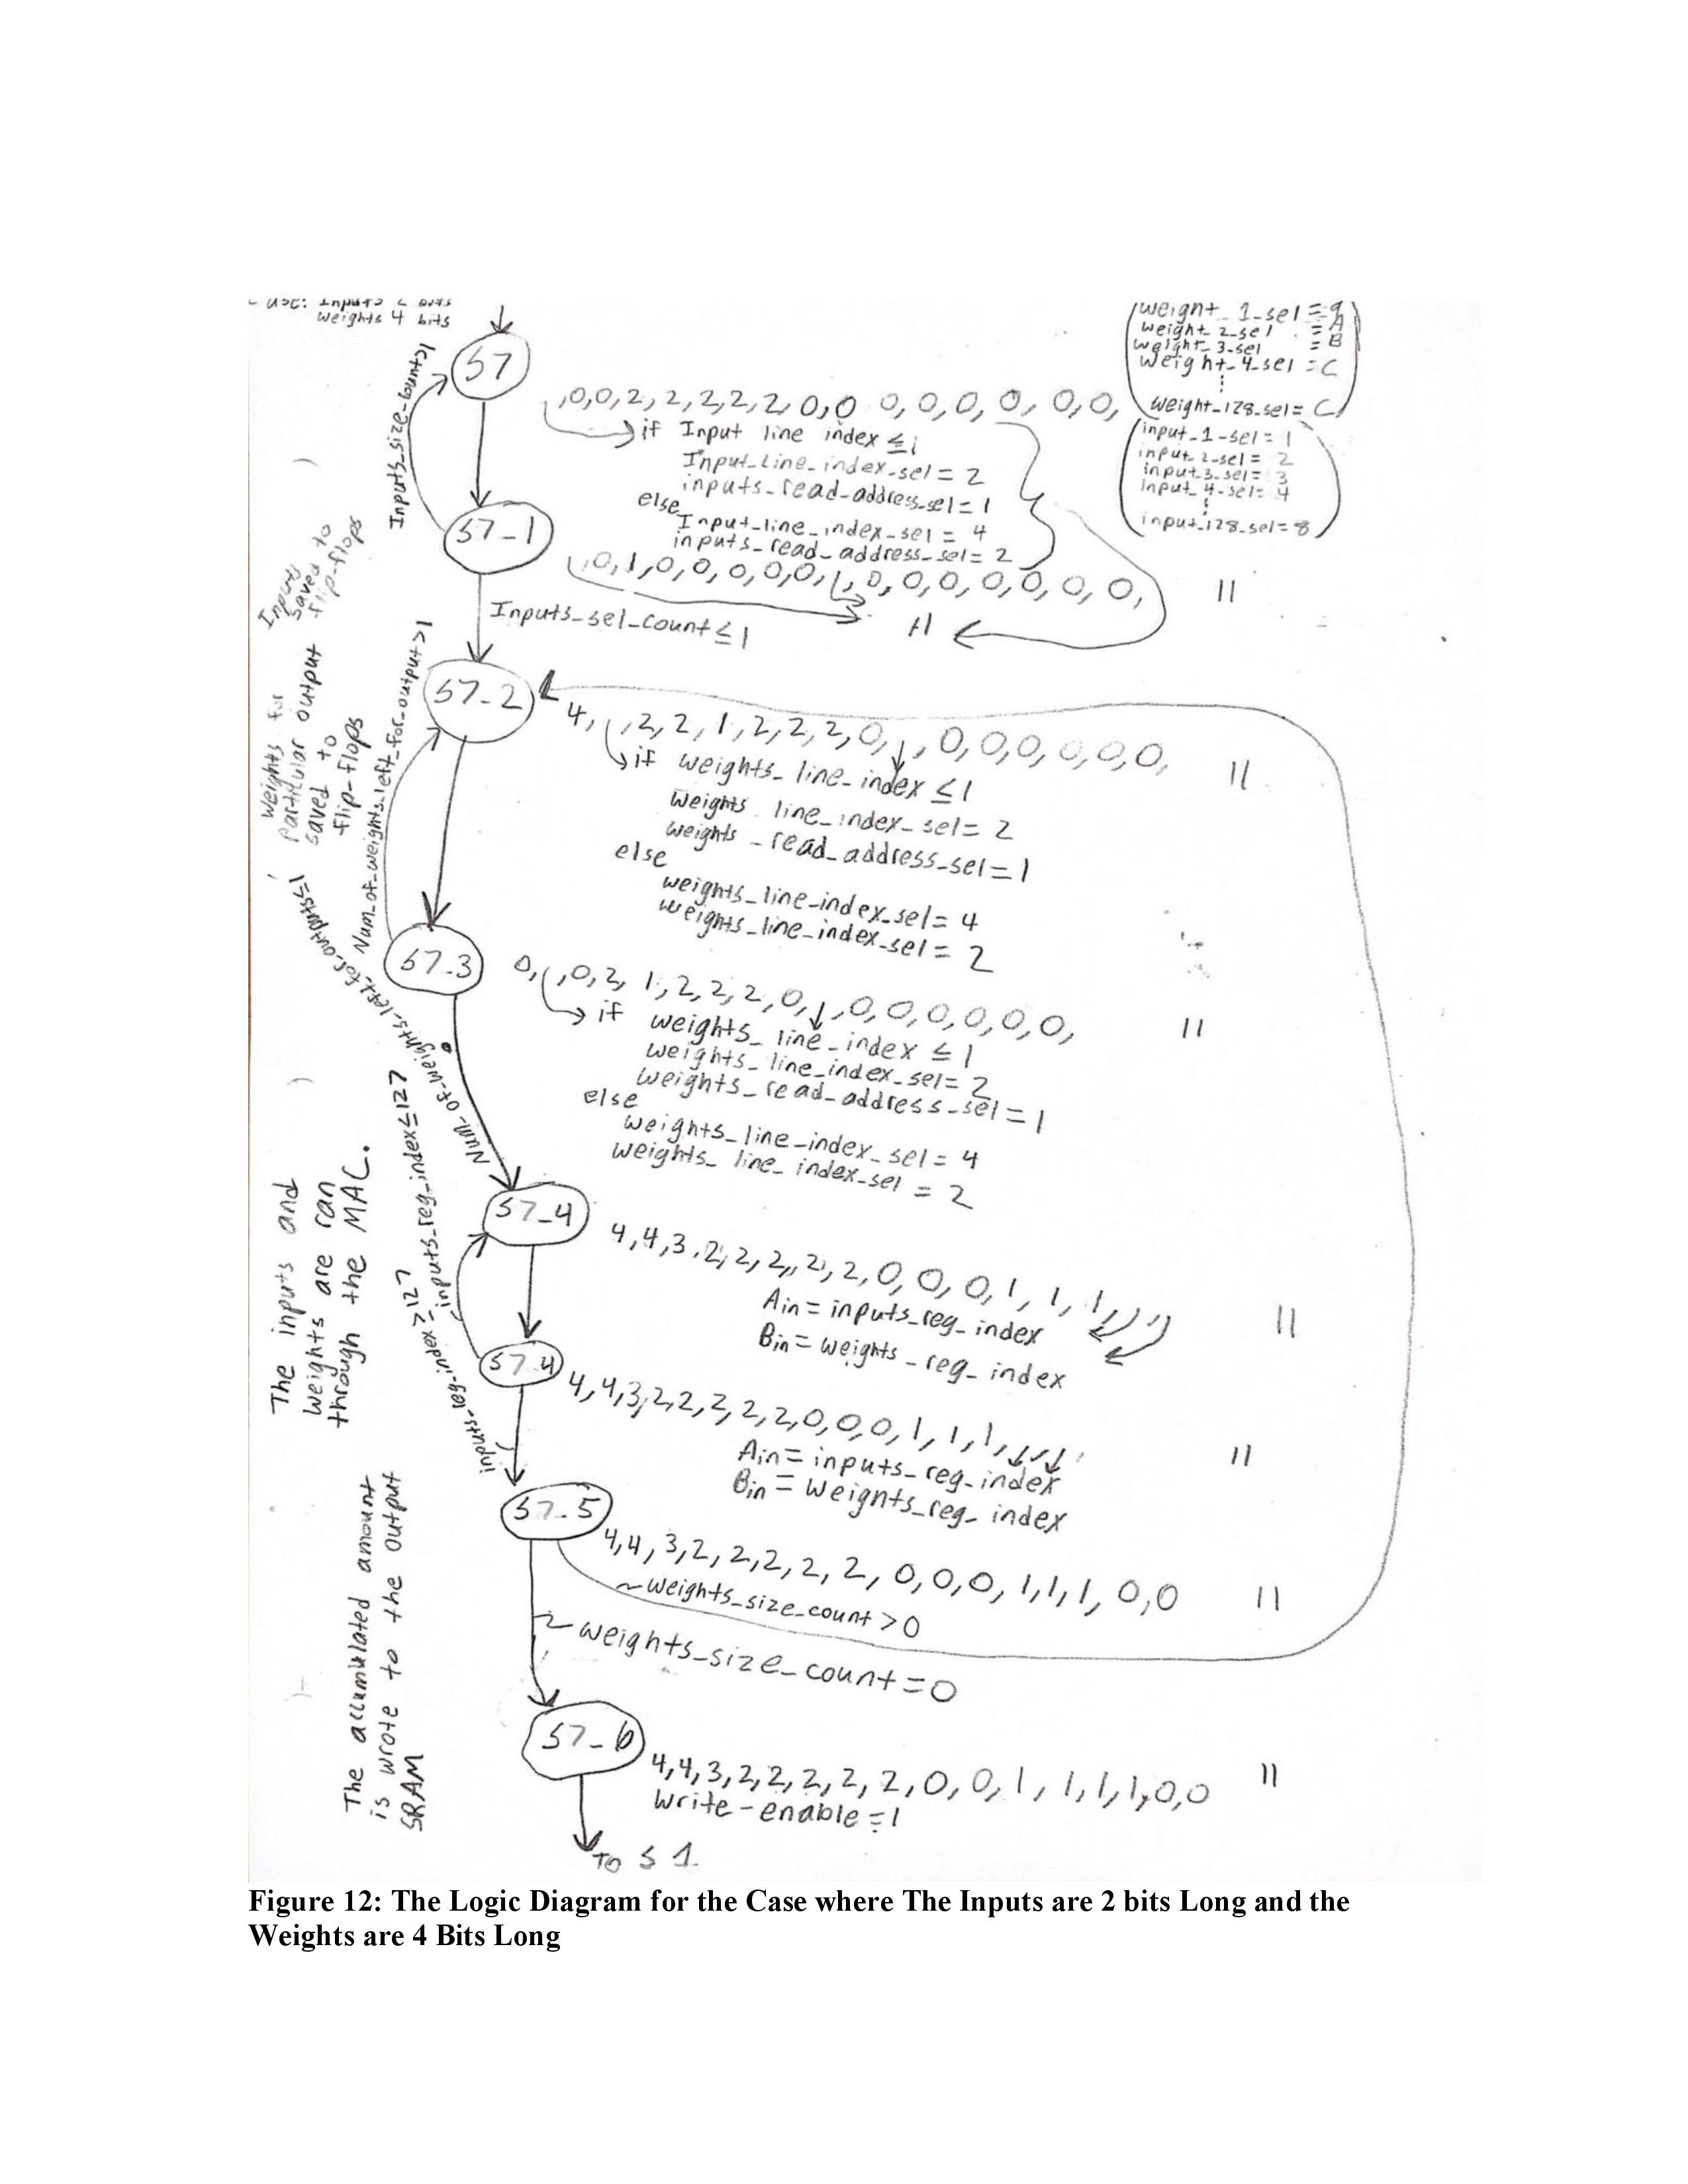 weights 4 bits
S7
Inputs_size_count>1
,0,0,2,2,2,2,2,0,0 0,0,0,0,0,0,
if Input line index ≤1
Input_Line_index_sel=2
inputs_read_address_sel=1
else
Input_line_index_sel=4
inputs_read_address_sel=2
weight_1_sel=9
weight_2_sel =A
weight_3_sel =B
weight_4_sel =C
⋮
weight_128_sel= C
input_1_sel=1
input_2_sel= 2
input_3_sel=3
input_4_sel=4
⋮
input_128_sel=8
S7_1
,0,1,0,0,0,0,0,1,0,0,0,0,0,0,0, 11
+1
Inputs_sel_count≤1
Inputs
saved to
flip-flops
S7_2
4, ,2,2,1,2,2,2,0, ,0,0,0,0,0,0, 11
if weights_line_index ≤1
weights line_index_sel=2
weights_read_address_sel=1
else
weights_line_index_sel=4
weights_line_index_sel=2
weights for
particular output
saved to
flip-flops
Num_of_weights_left_for_output>1
S7_3
0, ,0,2,1,2,2,2,0, ,0,0,0,0,0,0, 11
if weights_line_index ≤1
weights_line_index_sel=2
weights_read_address_sel=1
else
weights_line_index_sel=4
weights_line_index_sel =2
Num_of_weights_left_for_output≤1
S7_4
4,4,3,2,2,2,2,2,0,0,0,1,1,1, , 11
Ain=inputs_reg_index
Bin=weights_reg_index
inputs_reg_index≤127
The inputs and
weights are ran
through the MAC.
S7.4
4,4,3,2,2,2,2,2,0,0,0,1,1,1, , 11
Ain=inputs_reg_index
Bin=weights_reg_index
inputs_reg_index>127
S7_5
4,4,3,2,2,2,2,2,0,0,0,1,1,1,0,0 11
~weights_size_count>0
~weights_size_count=0
The accumulated amount
is wrote to the output
SRAM
S7_6
4,4,3,2,2,2,2,2,0,0,1,1,1,1,0,0 11
write-enable=1
To S1.
Figure 12: The Logic Diagram for the Case where The Inputs are 2 bits Long and the
Weights are 4 Bits Long